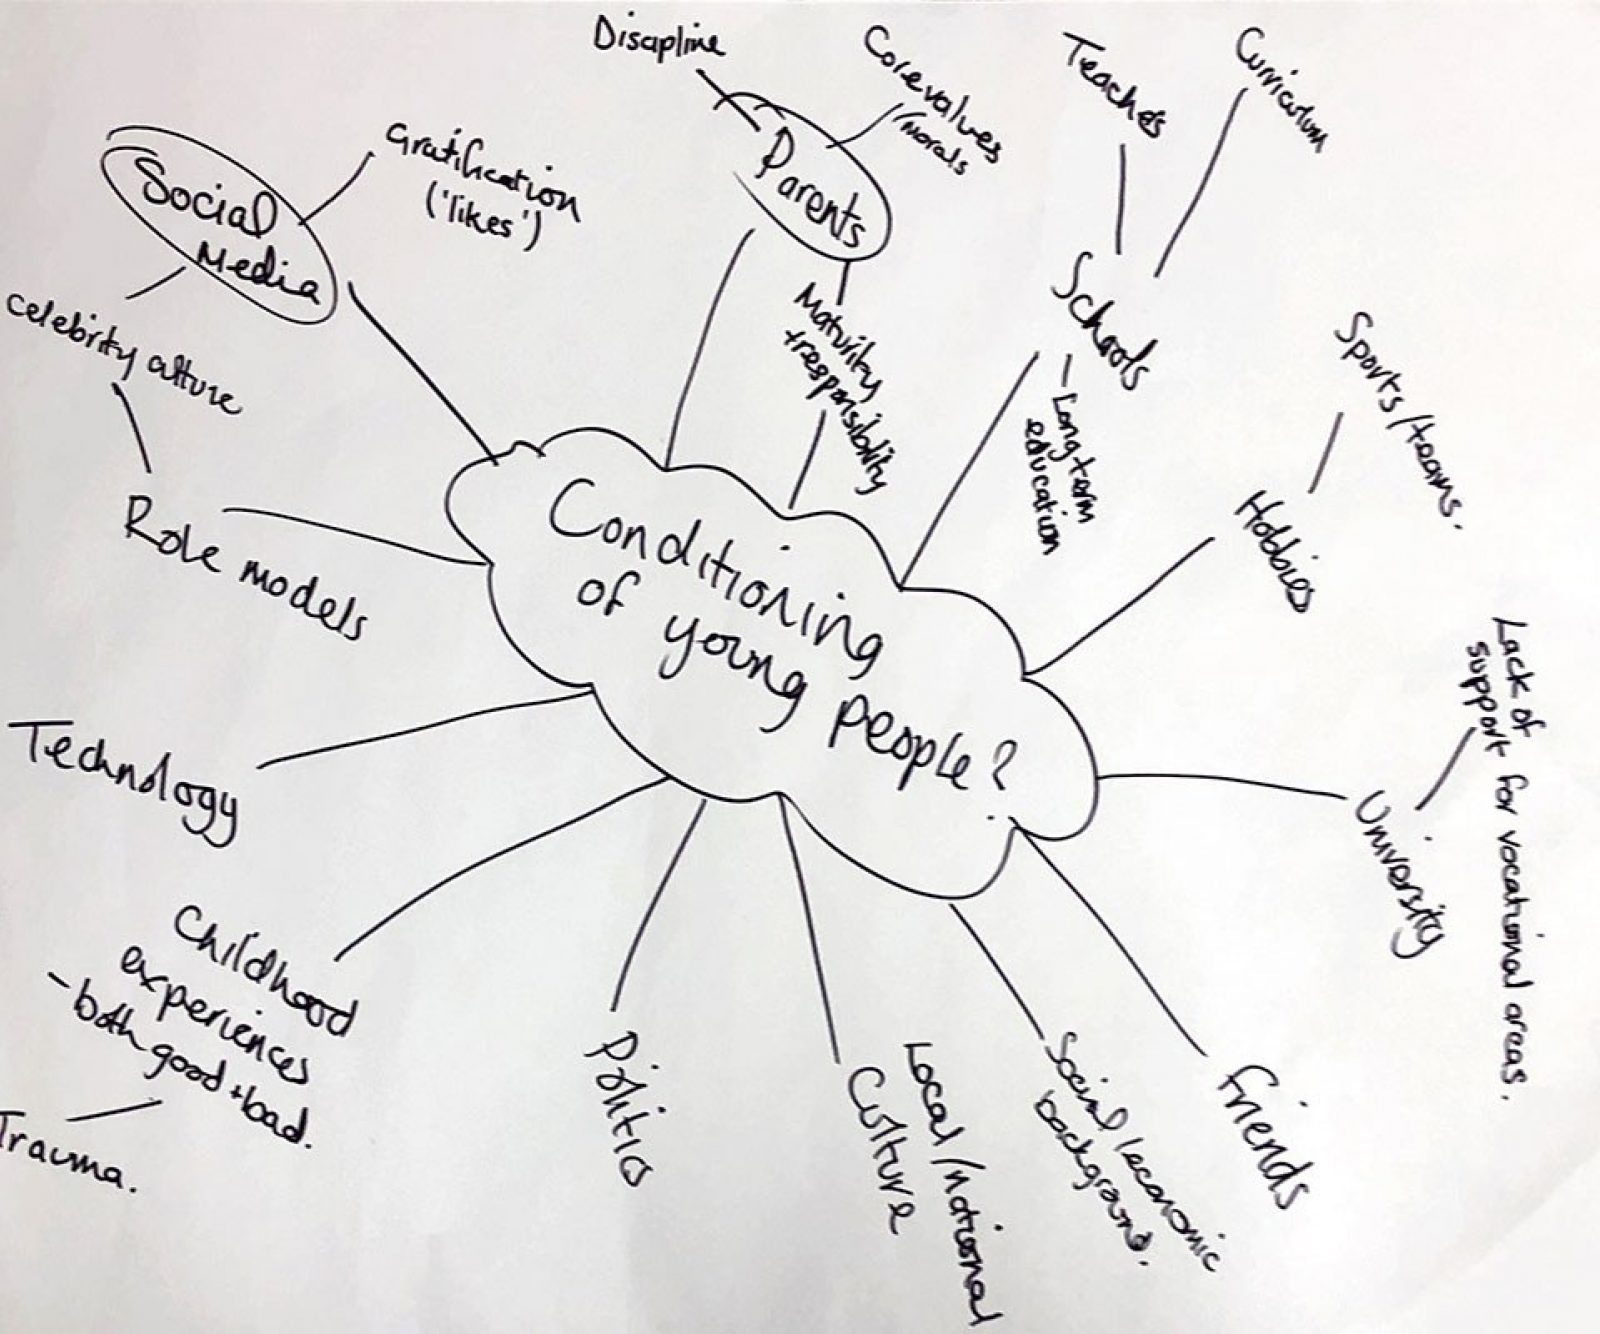 Discipline
Core values
/morals
Teaches
Curriculum
Parents
Gratification
('likes')
Social
Media
celebrity culture
Maturity
+responsibility
Schools
- Long term
education
Sports/teams.
Hobbies
Role models
Conditioning
of young
people?
Lack of
support for vocational areas.
University
Technology
Childhood
experiences
- both good + bad.
Trauma.
Politics
Local/national
Culture
Social/economic
background.
Friends